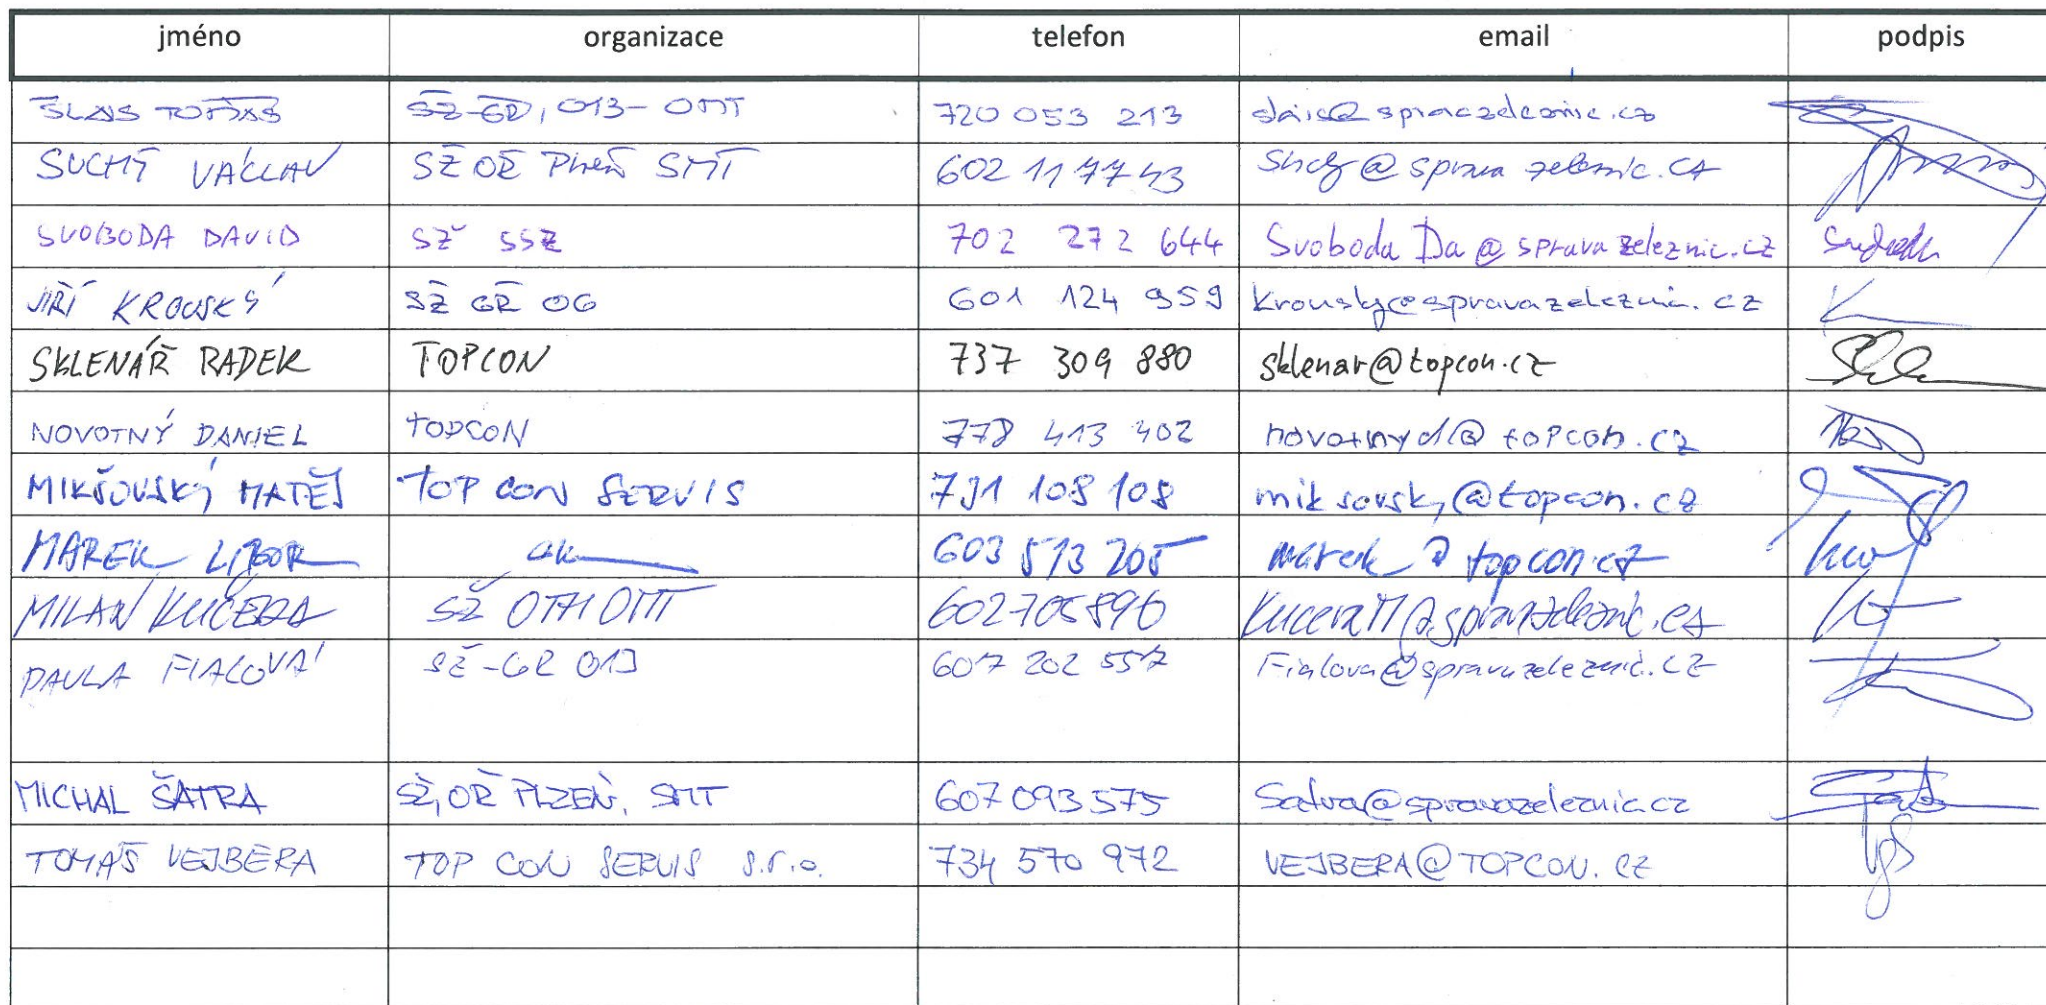 jméno organizace telefon email podpis
ŠLAIS TOMÁŠ SŽ-GŘ, O13- OMT 720 053 213
SUCHÝ VÁCLAV SŽ OŘ Plzeň SMT 602 117743 @sprava zeleznic.cz
SVOBODA DAVID SŽ SSZ 702 272 644 Svoboda Da@spravazeleznic.cz
JIŘÍ KROUSKÝ SŽ GŘ O6 601 124 959 Krousky@spravazeleznic.cz
SKLENÁŘ RADEK TOPCON 737 309 880 sklenar@topcon.cz
NOVOTNÝ DANIEL TOPCON 778 413 402 novotnyd@topcon.cz
MIKŠOVSKÝ MATĚJ TOP CON SERVIS 731 108 108 miksovsky@topcon.cz
MAREK LIBOR 603 513 205 marek@topcon.cz
MILAN KUČERA SŽ 602705896 KuceraM@spravazeleznic.cz
PAVLA FIALOVÁ SŽ-GŘ O13 607 202 557 Fialova@spravazeleznic.cz
MICHAL ŠATRA SŽ, OŘ PLZEŇ, SMT 607 093 575 Satra@spravazeleznic.cz
TOMÁŠ VEJBĚRA TOP CON SERVIS s.r.o. 734 570 972 VEJBERA@TOPCON.CZ